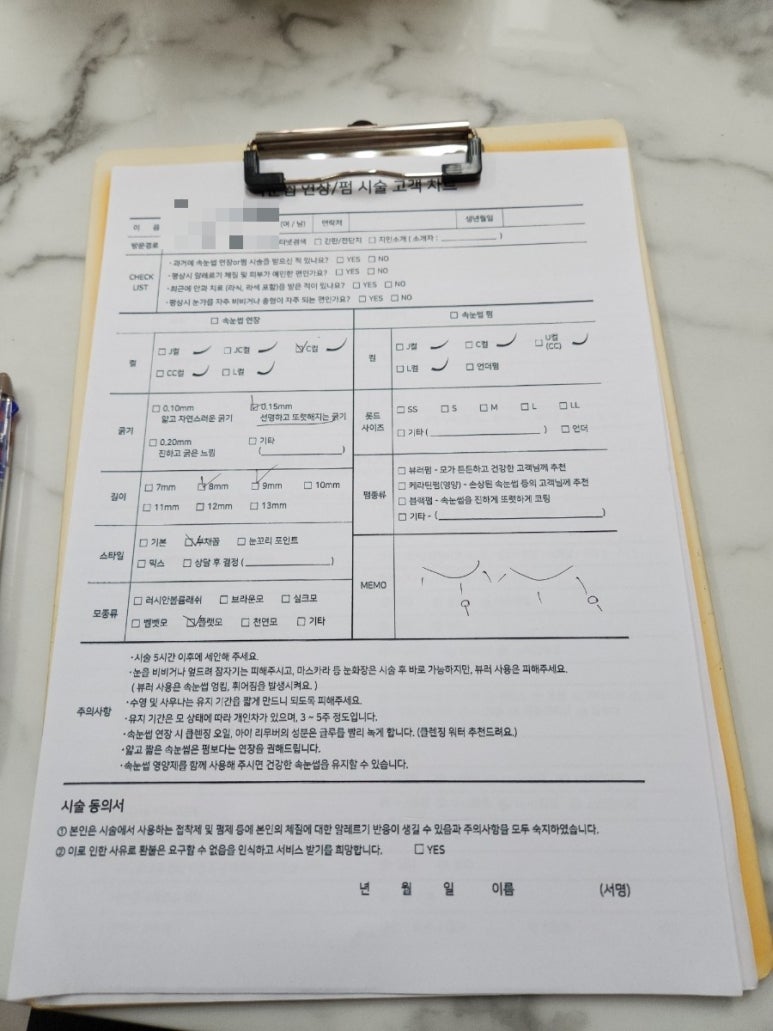 연장/펌 시술 고객 차트
이 름 (여 / 남) 연락처 생년월일
방문경로 터넷검색 □ 간판/전단지 □ 지인소개 ( 소개자 : )
CHECK LIST
· 과거에 속눈썹 연장or펌 시술을 받으신 적 있나요? □ YES □ NO
· 평상시 알레르기 체질 및 피부가 예민한 편인가요? □ YES □ NO
· 최근에 안과 치료 (라식, 라섹 포함)을 받은 적이 있나요? □ YES □ NO
· 평상시 눈가를 자주 비비거나 충혈이 자주 되는 편인가요? □ YES □ NO
□ 속눈썹 연장
컬
□ J컬 □ JC컬 ☑ C컬
□ CC컬 □ L컬
굵기
□ 0.10mm ☑ 0.15mm
얇고 자연스러운 굵기 선명하고 또렷해지는 굵기
□ 0.20mm □ 기타
진하고 굵은 느낌 ( )
길이
□ 7mm ☑ 8mm ☑ 9mm □ 10mm
□ 11mm □ 12mm □ 13mm
스타일
□ 기본 ☑ 부채꼴 □ 눈꼬리 포인트
□ 믹스 □ 상담 후 결정 ( )
모종류
□ 러시안볼륨래쉬 □ 브라운모 □ 실크모
□ 벨벳모 ☑ 플랫모 □ 천연모 □ 기타
□ 속눈썹 펌
컬
□ J컬 □ C컬 □ U컬 (CC)
□ L컬 □ 언더펌
롯드 사이즈
□ SS □ S □ M □ L □ LL
□ 기타 ( ) □ 언더
펌종류
□ 뷰러펌 - 모가 튼튼하고 건강한 고객님께 추천
□ 케라틴펌(영양) - 손상된 속눈썹 등의 고객님께 추천
□ 블랙펌 - 속눈썹을 진하게 또렷하게 코팅
□ 기타 - ( )
MEMO
주의사항
· 시술 5시간 이후에 세안해 주세요.
· 눈을 비비거나 엎드려 잠자기는 피해주시고, 마스카라 등 눈화장은 시술 후 바로 가능하지만, 뷰러 사용은 피해주세요.
( 뷰러 사용은 속눈썹 엉킴, 휘어짐을 발생시켜요. )
· 수영 및 사우나는 유지 기간을 짧게 만드니 되도록 피해주세요.
· 유지 기간은 모 상태에 따라 개인차가 있으며, 3 ~ 5주 정도입니다.
· 속눈썹 연장 시 클렌징 오일, 아이 리무버의 성분은 글루를 빨리 녹게 합니다. (클렌징 워터 추천드려요.)
· 얇고 짧은 속눈썹은 펌보다는 연장을 권해드립니다.
· 속눈썹 영양제를 함께 사용해 주시면 건강한 속눈썹을 유지할 수 있습니다.
시술 동의서
① 본인은 시술에서 사용하는 접착제 및 펌제 등에 본인의 체질에 대한 알레르기 반응이 생길 수 있음과 주의사항을 모두 숙지하였습니다.
② 이로 인한 사유로 환불은 요구할 수 없음을 인식하고 서비스 받기를 희망합니다. □ YES
년 월 일 이름 (서명)